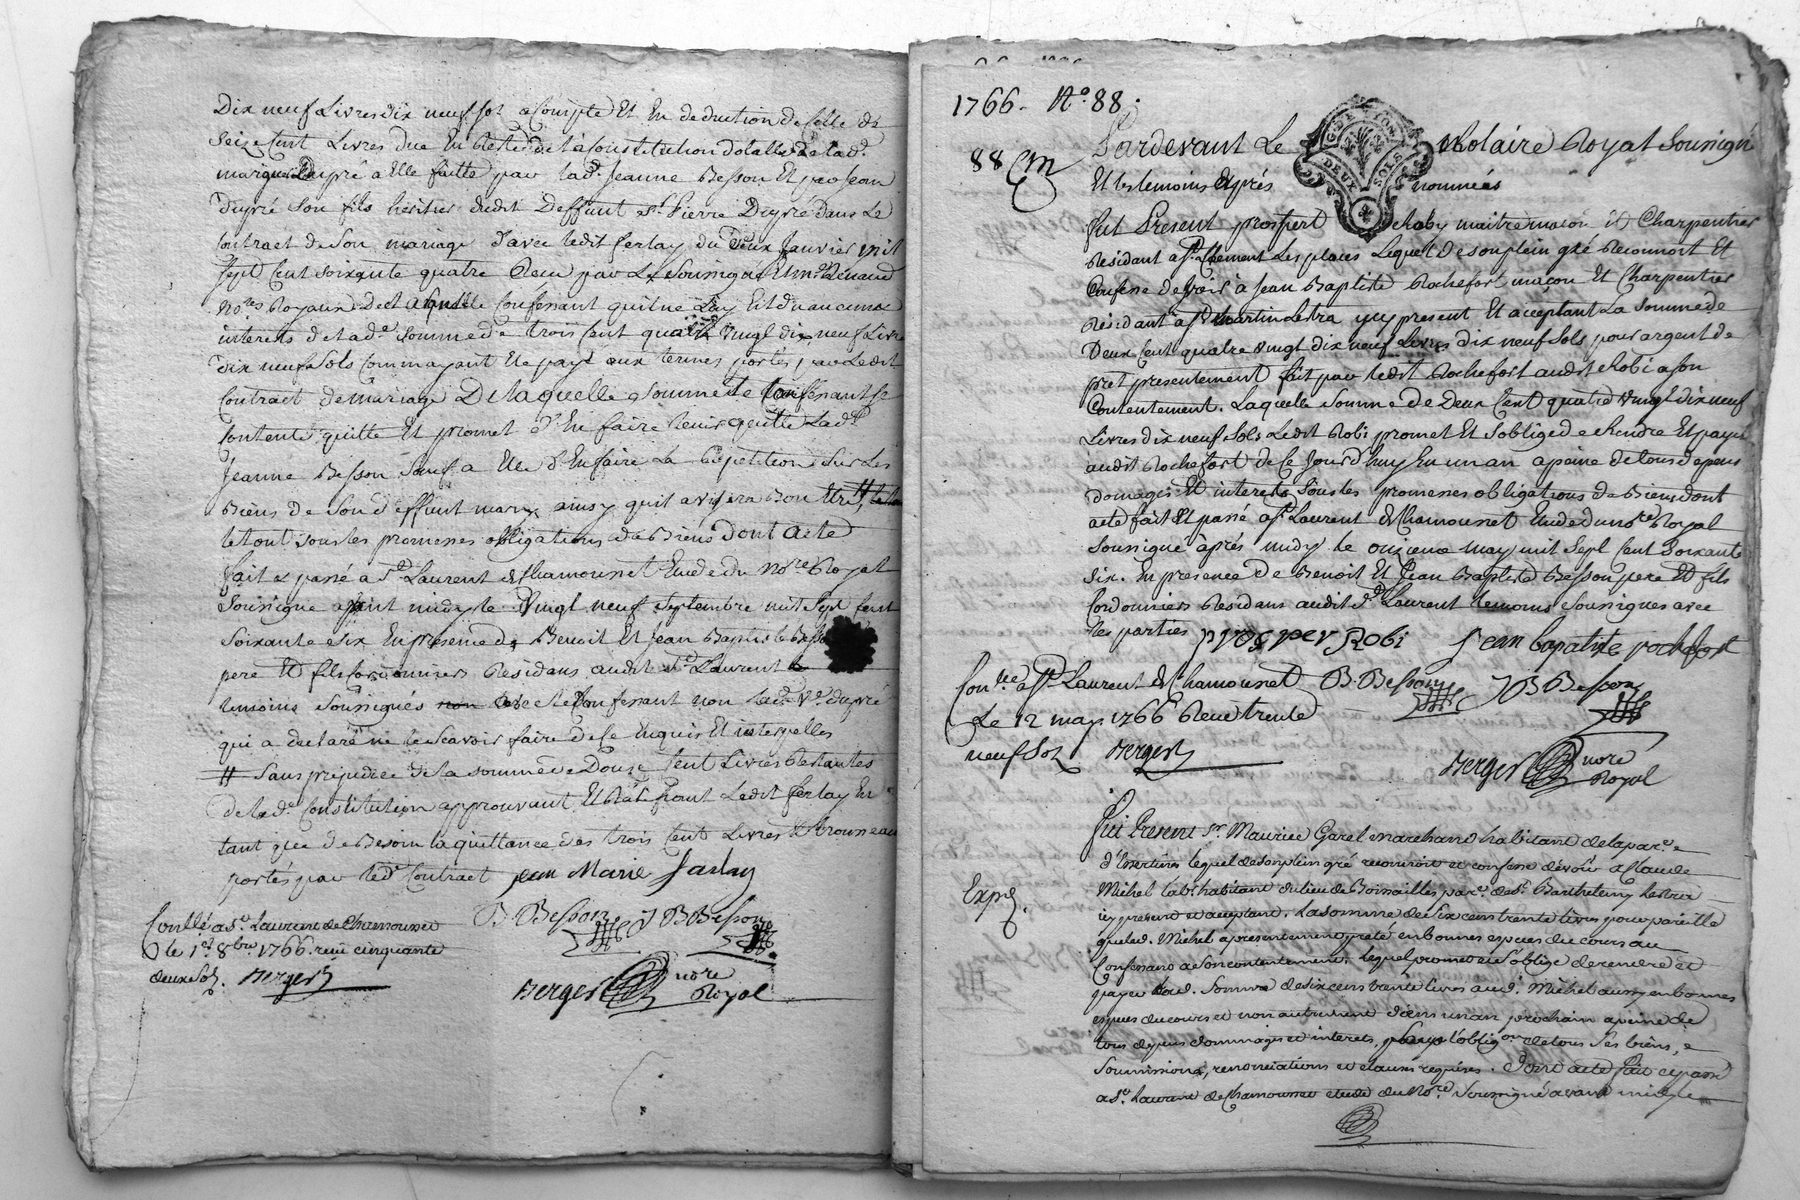 Dix neuf Livres dix neuf sol a Compte Et En deduction de Celle de
seize Cent Livres due En Reste de la Constitution dotalle de lad.
marguerite Dupré a Elle faitte par lad. Jeanne Besson Et par Jean
Dupré son fils heritier dudit Deffunt sr. Pierre Dupré dans Le
Contract de Son mariage d'avec ledit ferlay du Deux Janvier mil
Sept Cent soixante quatre Recu par Le Soussigné Et mr. Renaud
No.res Royaux
interets de lad.e somme de trois Cent quatre vingt dix neuf Livres
dix neuf sols Commayant Ete payé aux termes portés par Ledit
Contract de mariage De laquelle somme le Confessant se
Contente quitte Et promet d'En faire tenir quitte Lad.
Jeanne Besson Sauf a Elle d'En faire La Repetition Sur Les
Biens de Son deffunt mary ainsy quil avisera Bon Etre #
le tout sous les promesses obligations de Biens dont acte
fait & passé a St. Laurent de Chamousset Etude du Nore. Royal
Soussigné avant midy le Vingt neuf Septembre mil Sept Cent
Soixante six En presence de Benoit Et Jean Baptiste Besson
pere Et fils Cordonniers Residans audit St. Laurent
temoins Soussignés avec le Confessant non lad. Ve. dupré
qui a declaré ne le Scavoir faire de ce Enquis Et interpellés
# Sans prejudice de la somme de Douze Cent Livres Restantes
de lad.e Constitution approuvant Et Ledit ferlay En
tant que de Besoin la quittance des trois Cent Livres & trousseau
portés par led. Contract jean Marie farlay
Conllé. a St. Laurent de Chamousset B. Besson J B Besson
le 1er. 8bre. 1766. recu cinquante
deux Sol. Berger Berger nore Royal
1766. No. 88.
GDE LYON
DEUX SOLS
88 Cm Pardevant Le Notaire Royal Soussigné
Et les temoins Eprés nommés
fut Present prospert Roby maitre mason & Charpentier
Residant a St. Clement Les places Lequel de son plein gré Reconnoit Et
Confesse devoir à Jean Baptiste Rochefort macon Et Charpentier
Résidant a St. Martin Lestra y cy present Et acceptant La Somme de
Deux Cent quatre vingt dix neuf Livres dix neuf Sols pour argent de
pret presentement fait par ledit Rochefort audit Robi a son
Contentement. Laquelle Somme de Deux Cent quatre vingt dix neuf
Livres dix neuf Sols Ledit Robi promet Et S'oblige de Rendre Et payer
audit Rochefort de Ce Jourd'huy En un an a peine de tous depens
domages Et interets Sous les promesses obligations de Biens dont
acte fait Et passé a St. Laurent de Chamousset Etude du nore. Royal
Soussigné après midy le onzieme may mil Sept Cent Soixante
six. En presence de Benoit Et Jean Baptiste Besson pere Et fils
Cordonniers Residans audit St. Laurent temoins Soussignés avec
les parties prosper Robi Jean bapatite rochefort
Con.lée a St. Laurent de Chamousset B. Besson J B Besson
Le 12 may 1766 Receu trente
neuf Sol Berger Berger nore Royal
Fut Present sr. Maurice Garel marchand habitant de la par.e
d'Essertines lequel de son plein gré reconnoit et confesse devoir a Claude
Michel lab.r habitant du lieu de Boissailles par.e de St. Barthelemy lestra
Expé. icy present et acceptant. La somme de six cens trente livres pour pareille
que led. Michel a presentement preté en bonnes especes du cours au
Confessant a son contentement. Lequel promet et s'oblige de rendre et
payer lad. Somme de six cens trente livres aud. Michel aussy en bonnes
especes du cours et non autrement dans un an prochain a peine de
tous depens dommages et interets, l'oblig.on de tous Ses biens, &
Soumissions, renonciations et clauses requises. Dont acte fait et passé
a St. Laurent de Chamousset etude du No.re Soussigné avant midy le